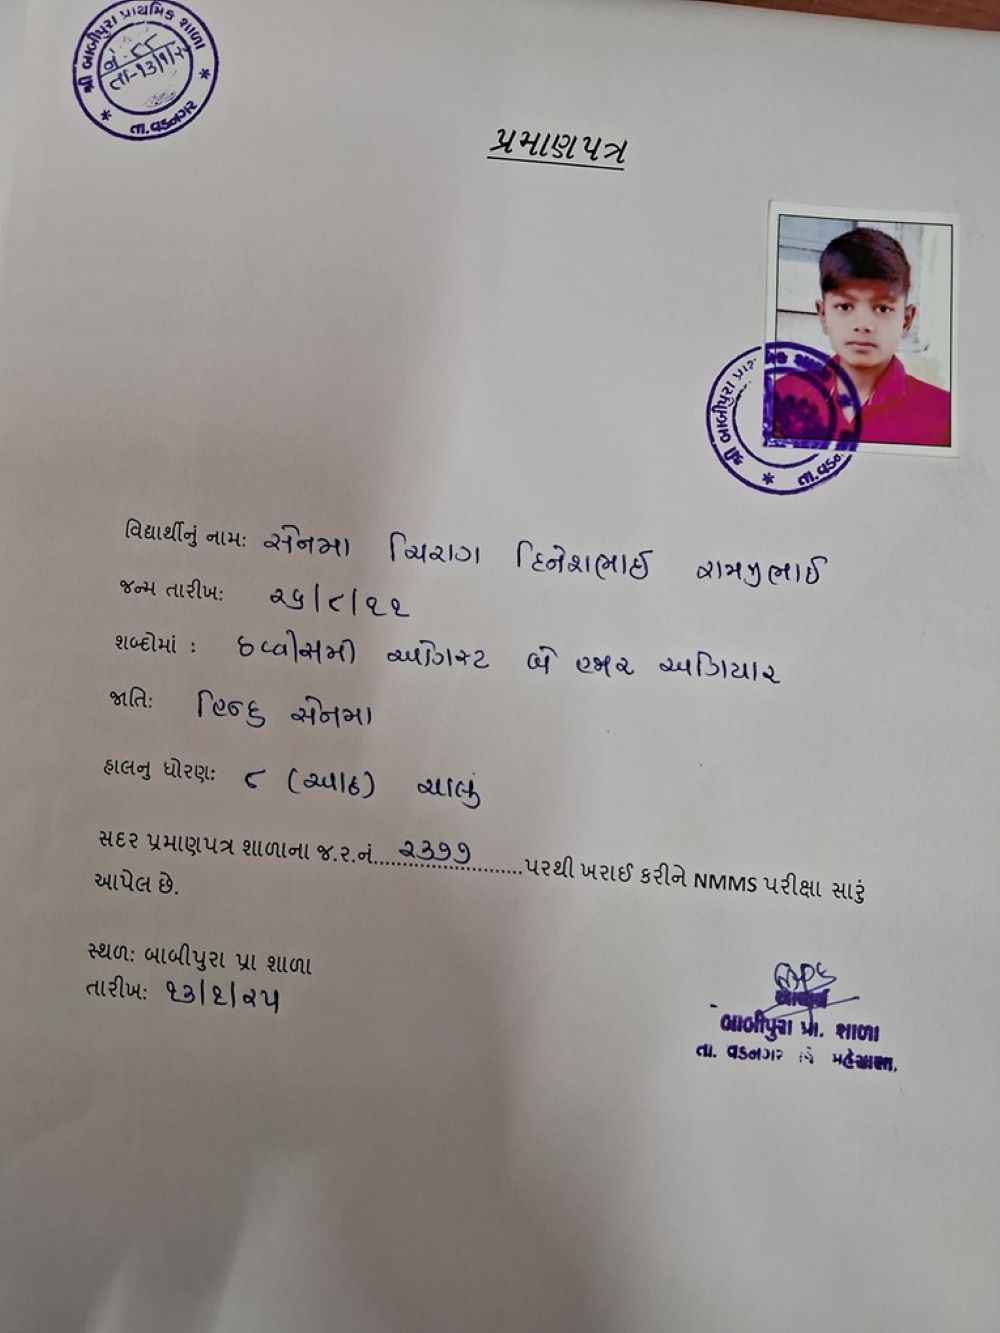 શ્રી બાબીપુરા પ્રાથમિક શાળા
નં. ૮૮
તા-૧૩/૧/૨૫
તા.વડનગર
પ્રમાણપત્ર
શ્રી બાબીપુરા પ્રા
શાળા
તા.વડન
વિદ્યાર્થીનું નામ: સેનમા ચિરાગ દિનેશભાઈ રામજીભાઈ
જન્મ તારીખ: ૨૬/૮/૧૧
શબ્દોમાં : છવ્વીસમી ઓગસ્ટ બે હજાર અગિયાર
જાતિ: હિન્દુ સેનમા
હાલનુ ધોરણ: ૮ (આઠ) ચાલું
સદર પ્રમાણપત્ર શાળાના જ.ર.નં...૨૩૭૭...પરથી ખરાઈ કરીને NMMS પરીક્ષા સારું
આપેલ છે.
સ્થળ: બાબીપુરા પ્રા શાળા
તારીખ: ૧૩/૧/૨૫
આચાર્ય
બાબીપુરા પ્રા. શાળા
તા. વડનગર જિ મહેસાણા.